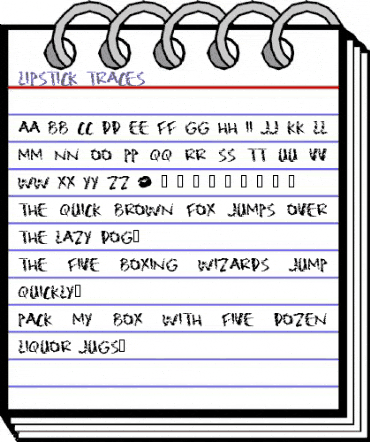 LIPSTICK TRACES
AA BB CC DD EE FF GG HH II JJ KK LL
MM NN OO PP QQ RR SS TT UU VV
WW XX YY ZZ 💋 □ □ □ □ □ □ □ □ □
THE QUICK BROWN FOX JUMPS OVER
THE LAZY DOG□
THE FIVE BOXING WIZARDS JUMP
QUICKLY□
PACK MY BOX WITH FIVE DOZEN
LIQUOR JUGS□